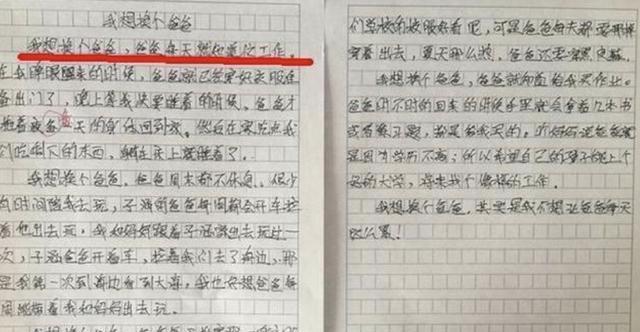 我想换个爸爸
我想换个爸爸，爸爸每天就知道工作。
在我睁眼醒来的时候，爸爸就已经穿好衣服准
备出门了，晚上等我快要睡着的时候，爸爸才
拖着疲惫一天的身体回到家。然后在家吃点我
们吃剩下的东西，躺在床上就睡着了。
我想换个爸爸，爸爸周末都不休息，很少
有时间陪我去玩，子涵的爸爸每周都会开车拉
着他出去玩，我和妈妈跟着子涵蹭出去玩过一
次，子涵爸爸开着车，拉着我们去了海边，那
是我第一次到海边看到大海，我也好想爸爸每
周能带着我和妈妈出去玩。
我想换个爸爸，
们学校的校服好看呢，可是爸爸每天都要
穿着出去，夏天那么热，爸爸还要穿黑皮鞋。
我想换个爸爸，爸爸就知道给我买作业。
爸爸时不时的回来的时候手里就会拿着几本书
或者练习题，都是给我买的。听妈妈说爸爸就
是因为学历不高，所以希望自己的孩子能上个
好的大学，将来找个像样的工作。
我想换个爸爸，其实是我不想让爸爸每天
这么累！